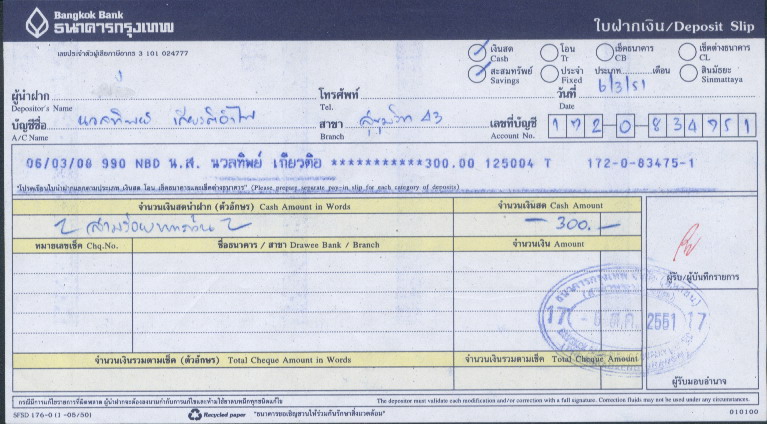 Bangkok Bank
ธนาคารกรุงเทพ
ใบฝากเงิน/Deposit Slip
เลขประจำตัวผู้เสียภาษีอากร 3 101 024777
เงินสด Cash
โอน Tr
เช็คธนาคาร CB
เช็คต่างธนาคาร CL
สะสมทรัพย์ Savings
ประจำ Fixed
ประเภท........เดือน
สินมัธยะ Sinmattaya
ผู้นำฝาก Depositor's Name
โทรศัพท์ Tel.
วันที่ Date 6/3/51
บัญชีชื่อ A/C Name นวลทิพย์
สาขา Branch สุขุมวิท 43
เลขที่บัญชี Account No. 172-0-834751
06/03/08 990 NBD น.ส. นวลทิพย์ เกียวติอ ***********300.00 125004 T 172-0-83475-1
"โปรดเขียนใบนำฝากแยกตามประเภท เงินสด โอน เช็คธนาคารและเช็คต่างธนาคาร" (Please prepare separate pay-in slip for each category of deposits)
จำนวนเงินสดนำฝาก (ตัวอักษร) Cash Amount in Words
จำนวนเงินสด Cash Amount
สามร้อยบาทถ้วน
300.-
หมายเลขเช็ค Chq.No.
ชื่อธนาคาร / สาขา Drawee Bank / Branch
จำนวนเงิน Amount
ผู้รับ/ผู้บันทึกรายการ
17
2551
17
จำนวนเงินรวมตามเช็ค (ตัวอักษร) Total Cheque Amount in Words
จำนวนเงินรวมตามเช็ค Total Cheque Amount
ผู้รับมอบอำนาจ
กรณีมีการแก้ไขรายการที่ผิดพลาด ผู้นำฝากต้องลงนามกำกับการแก้ไขและห้ามใช้ยาลบหมึกทุกชนิดแก้ไข
The depositor must validate each modification and/or correction with a full signature. Correction fluids may not be used under any circumstances.
SFSD 176-0 (1 -05/50)
Recycled paper
"ธนาคารขอเชิญชวนให้ร่วมกันรักษาสิ่งแวดล้อม"
010100